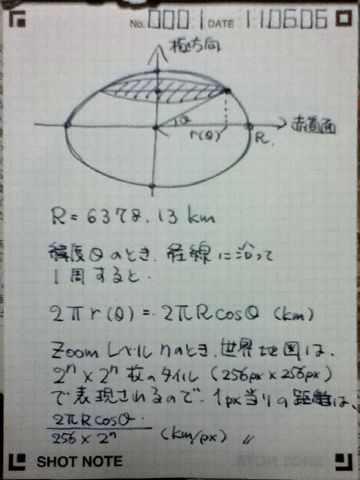 No. 0001 DATE 110606
極方向
θ
r(θ)
R
赤道面
R = 6378.13 km
緯度θのとき、経線に沿って
1周すると、
2πr(θ) = 2πRcosθ (km)
Zoomレベルnのとき、世界地図は、
2ⁿ×2ⁿ枚のタイル (256px×256px)
で表現されるので、1px当りの距離は、
2πRcosθ
256×2ⁿ (km/px) 〃
SHOT NOTE